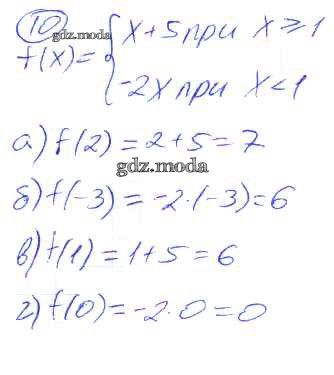 10 gdz.moda
f(x) = { x + 5 при x ≥ 1
-2x при x < 1
а) f(2) = 2 + 5 = 7
gdz.moda
б) f(-3) = -2 · (-3) = 6
в) f(1) = 1 + 5 = 6
г) f(0) = -2 · 0 = 0